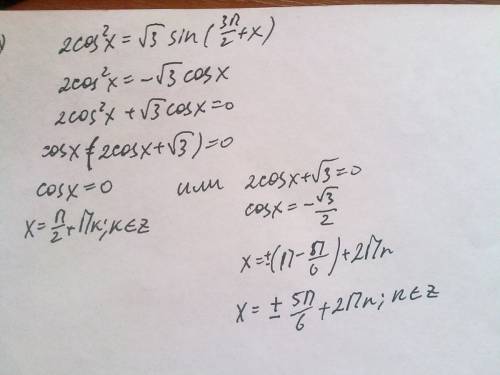 )
2cos²x = √3 sin(3π/2 + x)
2cos²x = -√3 cosx
2cos²x + √3 cosx = 0
cosx (2cosx + √3) = 0
cosx = 0 или 2cosx + √3 = 0
x = π/2 + πк; к∈z cosx = -√3/2
x = ±(π - π/6) + 2πn
x = ± 5π/6 + 2πn; n∈z